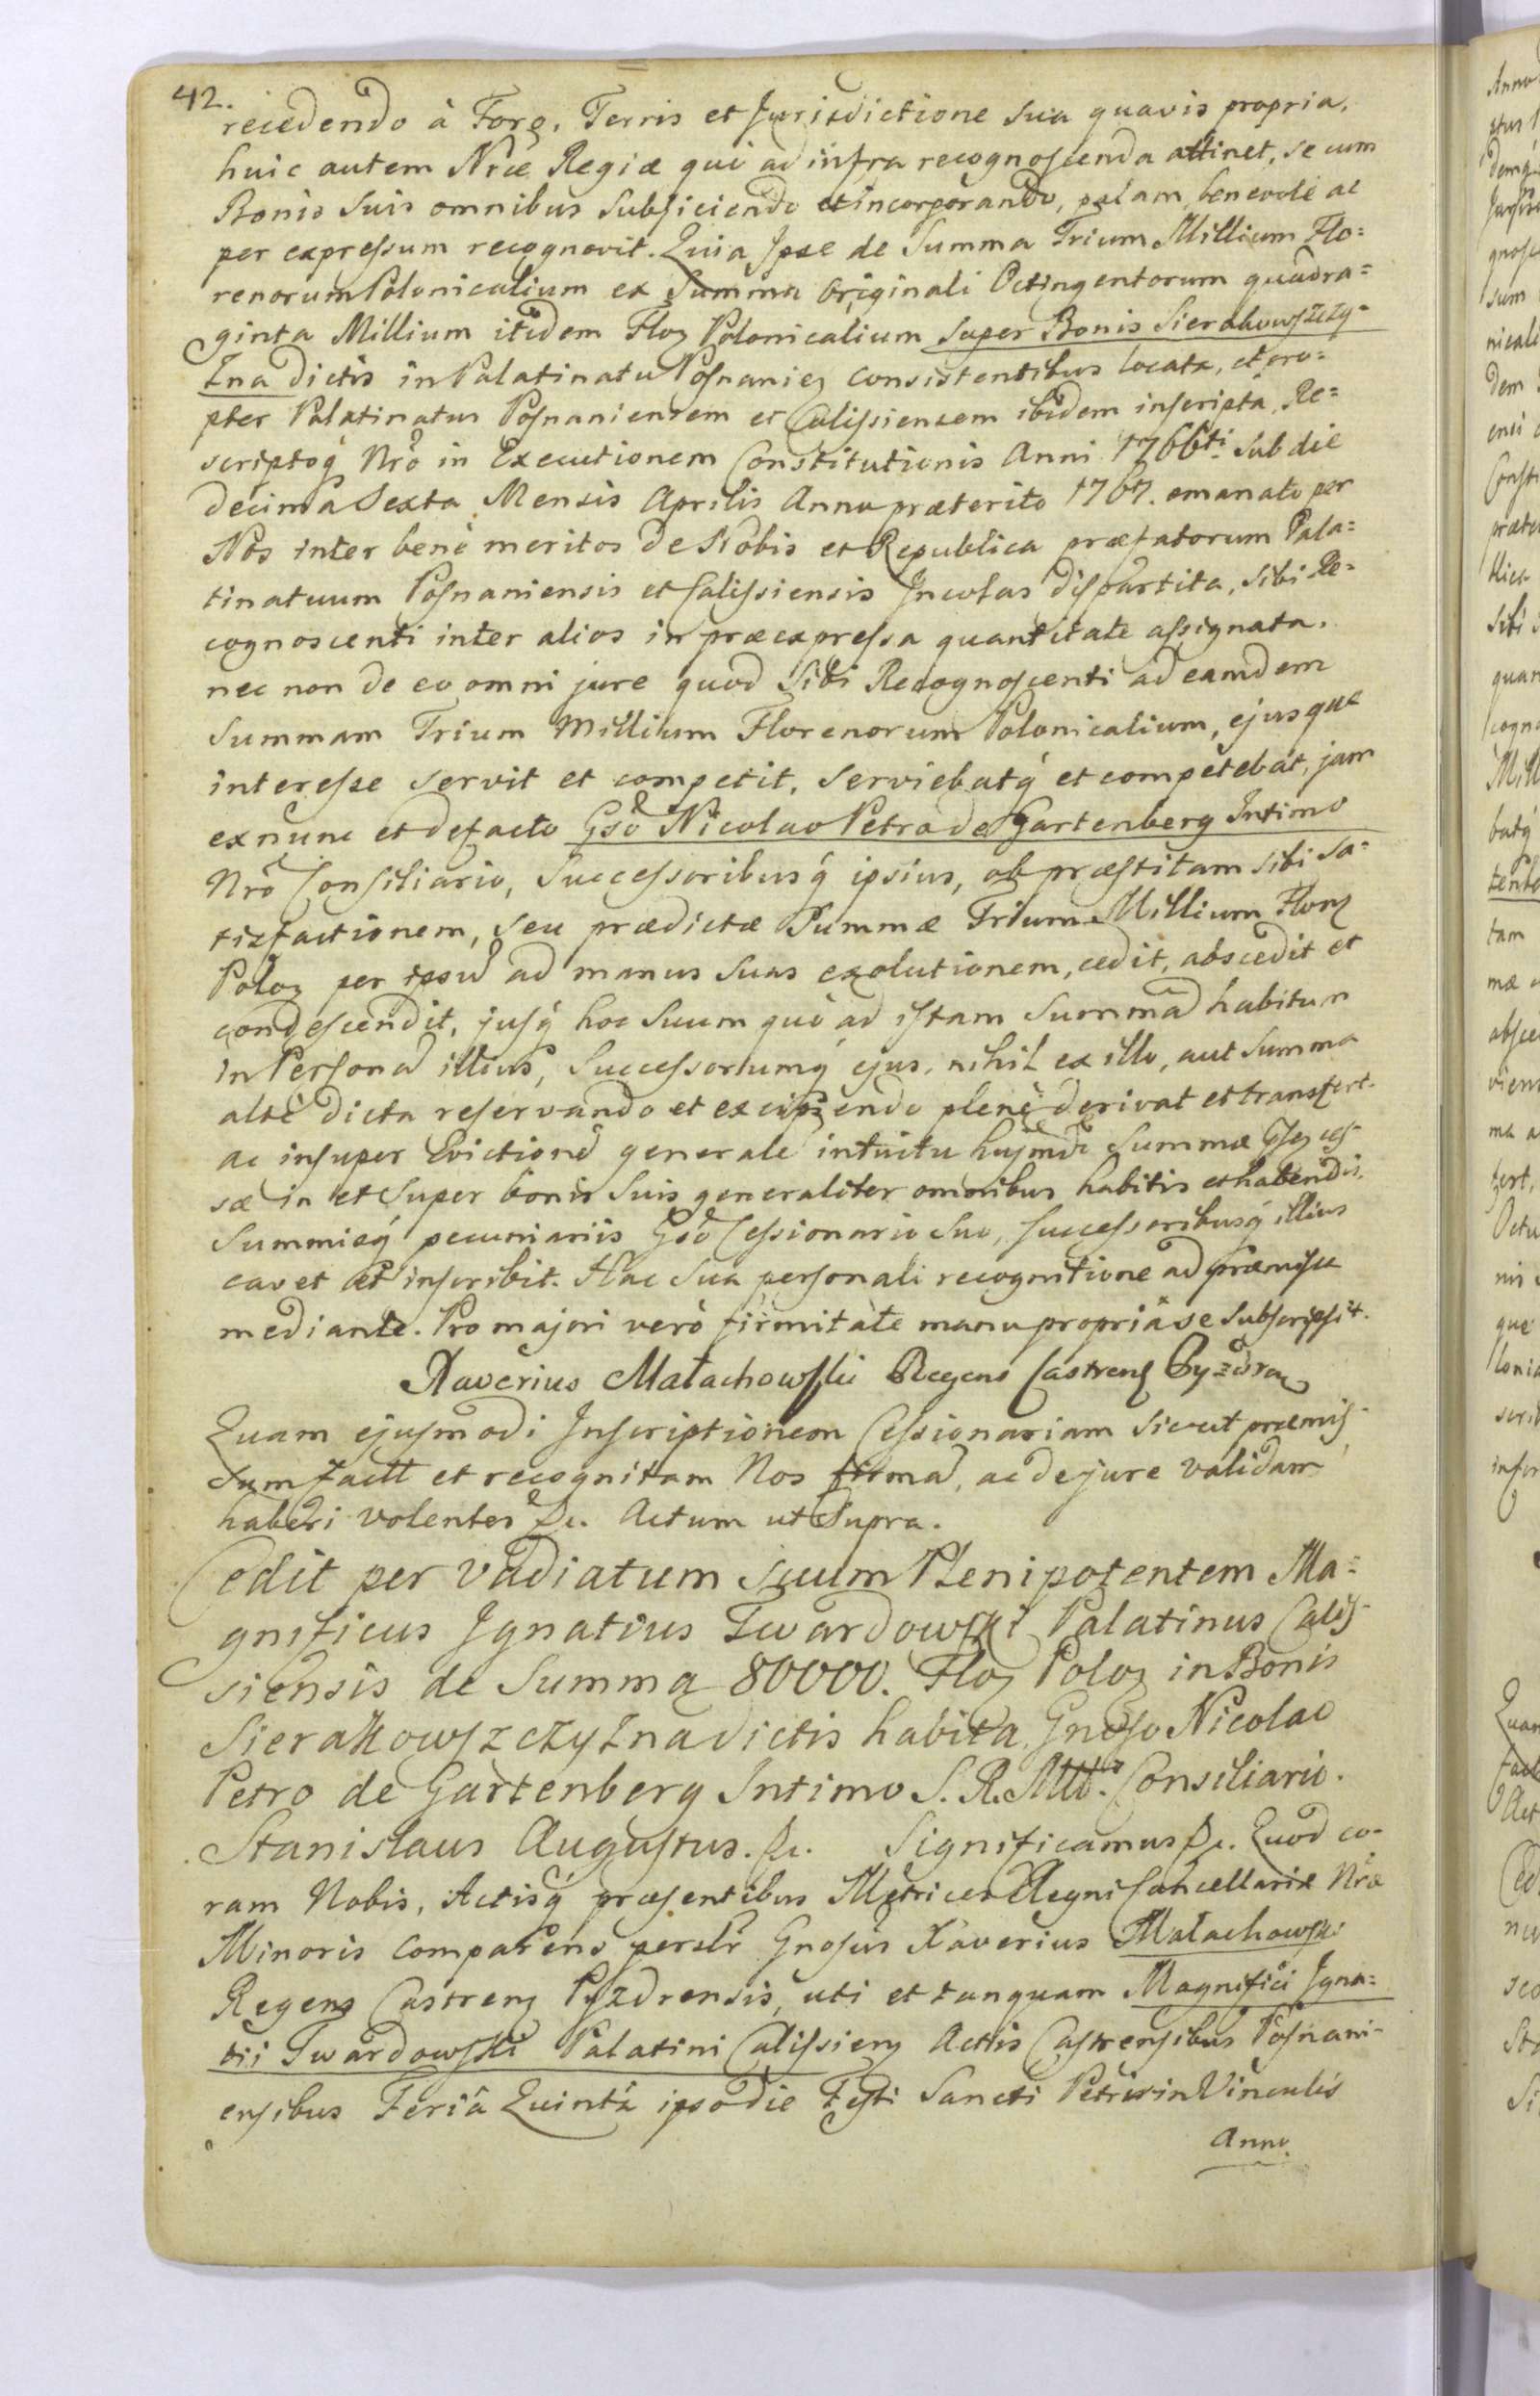 42.
recedendo à Foro, Terris et Jurisdictione sua quavis propria,
huic autem Nrae Regiae quò ad infra recognoscenda attinet, se cum
Bonis suis omnibus subjiciendo et incorporando, palam, benevolè ac
per expressum recognovit. Quia Ipse de Summa Trium Millium Flo=
renorum Polonicalium ex Summa Originali Octingentorum quadra=
ginta Millium itidem Floz Polonicalium super Bonis Sierakowszczy=
zna dictis in Palatinatu Posnaniez consistentibus locata, et pro=
pter Palatinatus Posnaniensem et Calissiensem ibidem inscripta, Re=
scriptoq́ Nrõ in Executionem Constitutionis Anni 1766ti sub die
decima Sexta Mensis Aprilis Anno praeterito 1767. emanato per
Nos inter benè meritos de Nobis et Republica praefatorum Pala=
tinatuum Posnaniensis et Calissiensis Incolas dispartita, sibi Re=
cognoscenti inter alios in praeexpressa quantitate assignata,
nec non de eo omni jure quod sibi Recognoscenti ad eamdem
Summam Trium Millium Florenorum Polonicalium, ejusque
interesse servit et competit, serviebatq́ et competebat, jam
ex nunc et de facto Gsõ Nicolao Petro de Gartenberg Intimo
Nrõ Consiliario, Successoribusq́ ipsius, ob praestitam sibi sa=
tisfactionem, seu praedictae Summae Trium Millium Florz
Poloz per ipsũ ad manus suas exolutionem, cedit, abscedit et
condescendit, jusq́ hoc suum quò ad istam Summã habitum
in Personã illius, Successorumq́ ejus, nihil ex illo, aut Summa
altè dicta reservando et excipiendo plenè derivat et transfert.
ac insuper Evictionẽ generalẽ intuitu hujmdi Summae Gsez ces-
sae in et super bonis suis generaliter omnibus habitis et habendis,
Summisq́ pecuniariis Gsõ Cessionario suo, successoribusq́ illius
cavet et inscribit. Hac sua personali recognitione ad praemissa
mediante. Pro majori verò firmitate manu propriâ se subscripsit.
Xaverius Małachowski Regens Castrenz Pyzdrenz
Quam ejusmodi Inscriptionem Cessionariam sicut praemis-
sum factt et recognitam Nos firmã, ac de jure validam
haberi volentes &c. Actum ut supra.
Cedit per vadiatum suum Plenipotentem Ma=
gnificus Ignatius Twardowski Palatinus Calis-
siensis de Summa 80000. Floz Poloz in Bonis
Sierakowszczyzna dictis habita Gnoso Nicolao
Petro de Gartenberg Intimo S. R. Mttis Consiliario.
Stanislaus Augustus. &c. Significamus &c. Quod co-
ram Nobis, Actisq́ praesentibus Metrices Regni Cancellariae Nrae
Minoris comparens persłr Gnosus Xaverius Małachowski
Regens Castrenz Pyzdrensis, uti et tanquam Magnifici Igna=
tii Twardowski Palatini Calissienz Actis Castrensibus Posnani-
ensibus Feriâ Quintâ ipso die Festi Sancti Petri in Vinculis
Anno